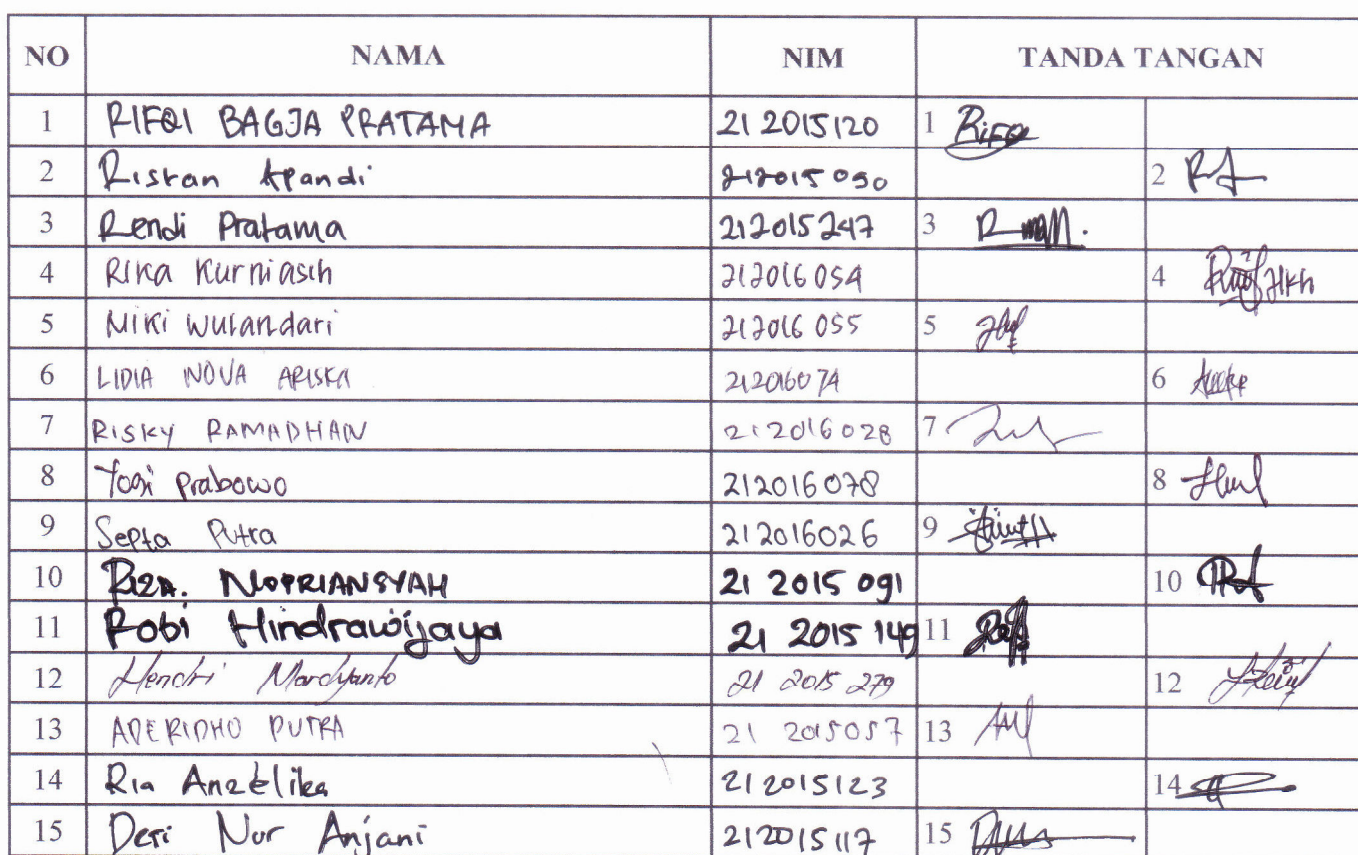 NO NAMA NIM TANDA TANGAN
1 RIFQI BAGJA PRATAMA 21 2015120 1 RIFQI
2 Riskan Apandi 212015090 2
3 Rendi Pratama 212015247 3
4 Rika Kurniasih 212016054 4
5 Miki Wulandari 212016055 5
6 LIDIA NOVA ARISKA 212016074 6
7 RISKY RAMADHAN 212016028 7
8 Yogi Prabowo 212016078 8
9 Septa Putra 212016026 9
10 RIZA. NOPRIANSYAH 21 2015 091 10
11 Robi Hindrawijaya 21 2015 149 11
12 Hendri Mardyanto 21 2015 279 12
13 ADE RIDHO PUTRA 21 2015057 13
14 Ria Anzélika 212015123 14
15 Deri Nur Anjani 212015117 15